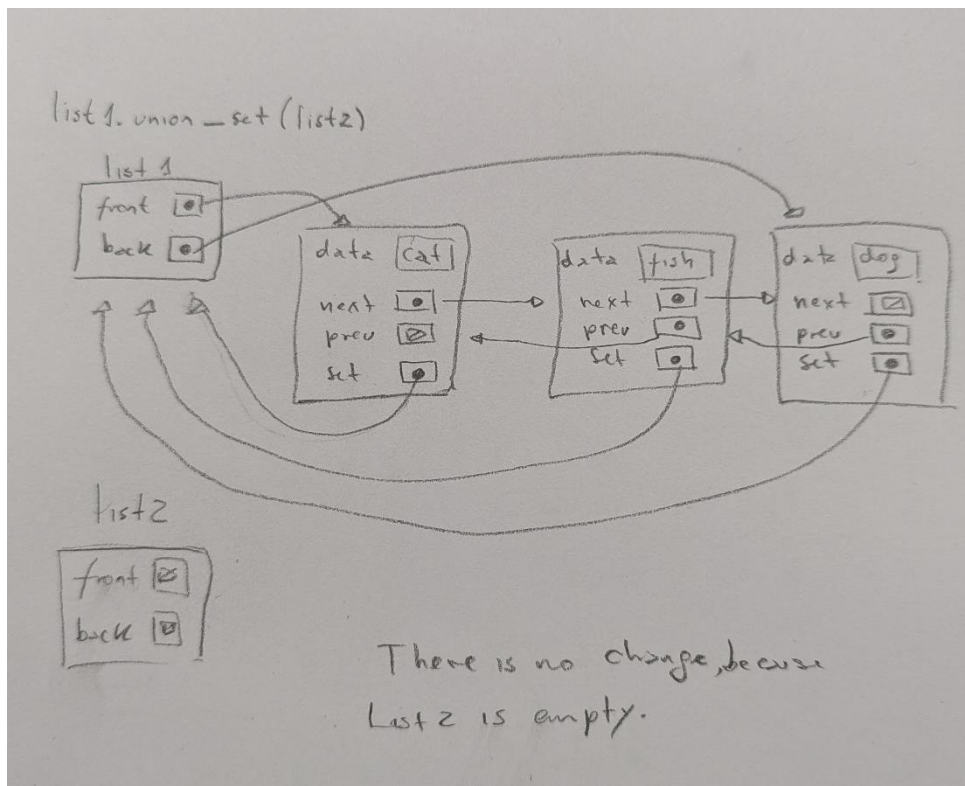 list1.union_set(list2)
list 1
front
back
data cat
next
prev
set
data fish
next
prev
set
data dog
next
prev
set
list2
front
back
There is no change, becuse
List 2 is empty.